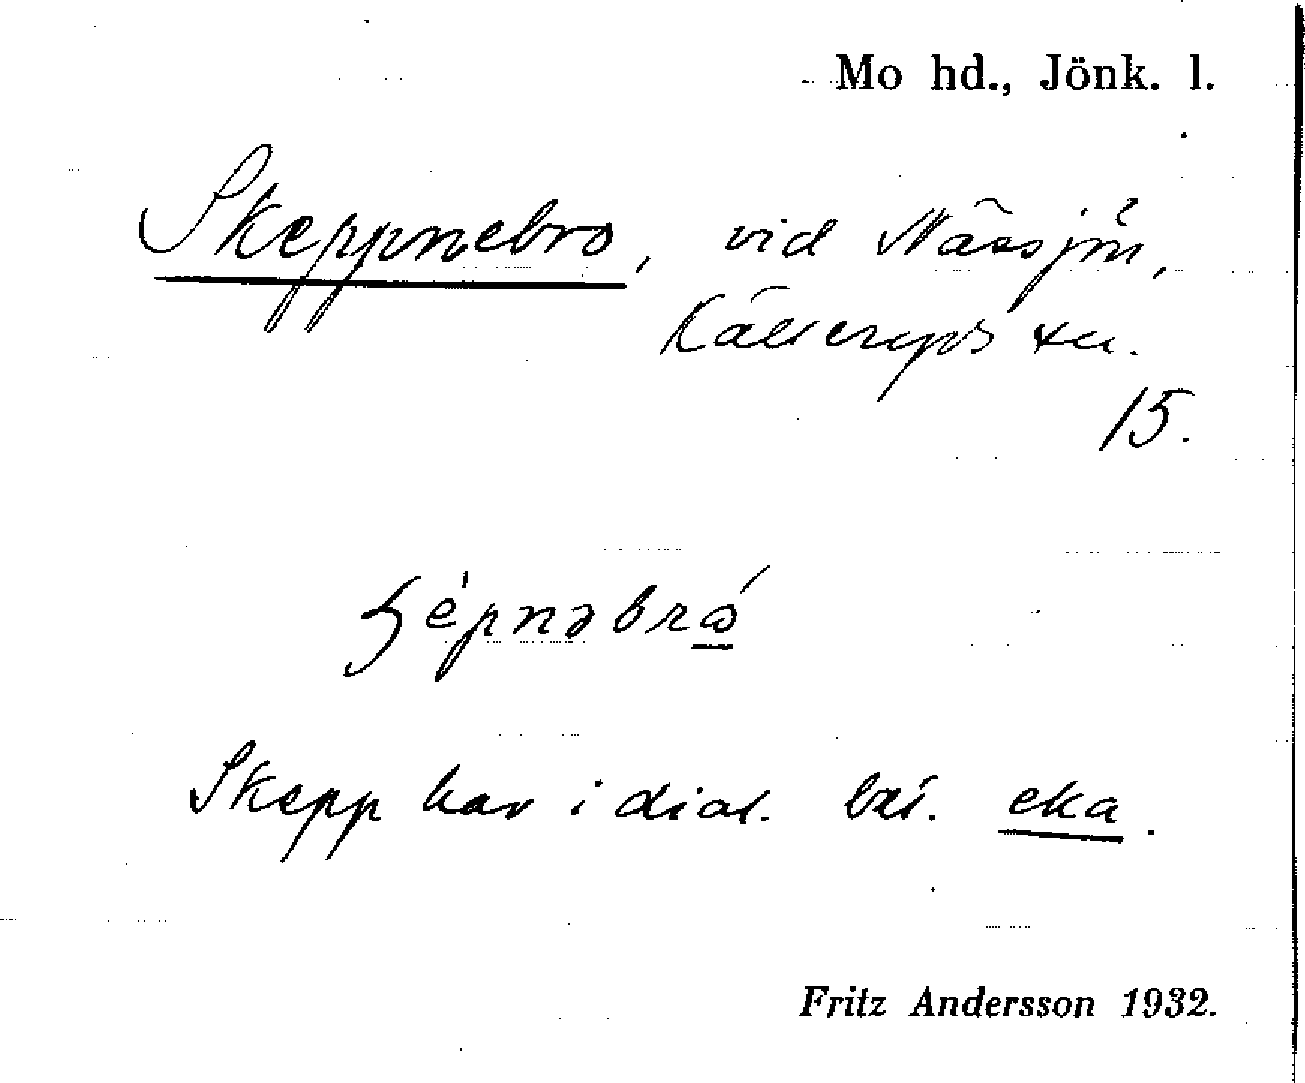 Mo hd., Jönk. l.
Skeppnebro, vid Nässjön,
Källeryds sn.
15.
ʂèpnəbrǿ
Skepp har i dial. bet. eka.
Fritz Andersson 1932.